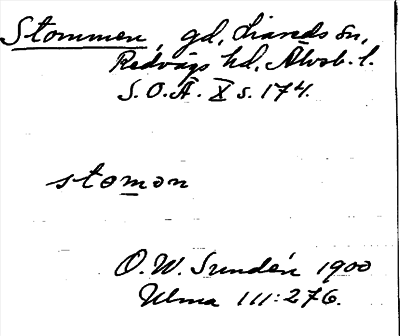 Stommen, gd, Liareds sn,
Redvägs hd, Älvsb. l.
S.O.Ä. X s. 174.
stomən
O.W. Sundén 1900
Ulma 111:276.